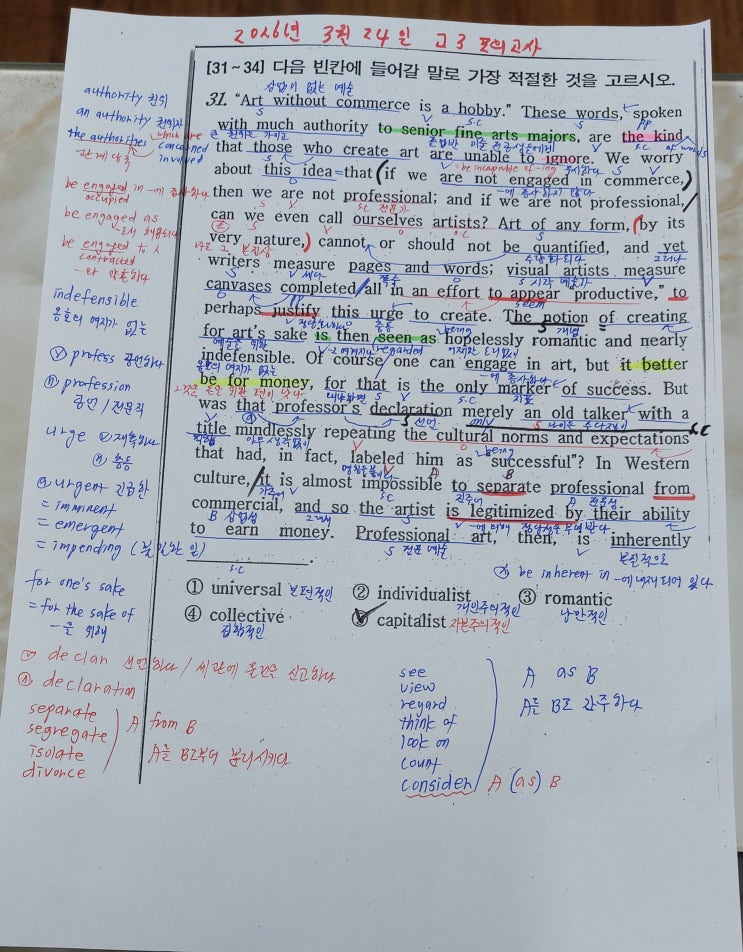 2026년 3월 24일 고3 모의고사
[31~34] 다음 빈칸에 들어갈 말로 가장 적절한 것을 고르시오.
상업이 없는 예술
31. “Art without commerce is a hobby.” These words, spoken
with much authority to senior fine arts majors, are the kind
that those who create art are unable to ignore. We worry
about this idea—that if we are not engaged in commerce,
then we are not professional; and if we are not professional,
can we even call ourselves artists? Art of any form, by its
very nature, cannot or should not be quantified, and yet
writers measure pages and words; visual artists measure
canvases completed, all in an effort to appear “productive,” to
perhaps justify this urge to create. The notion of creating
for art's sake is then seen as hopelessly romantic and nearly
indefensible. Of course one can engage in art, but it better
be for money, for that is the only marker of success. But
was that professor's declaration merely an old talker with a
title mindlessly repeating the cultural norms and expectations
that had, in fact, labeled him as “successful”? In Western
culture, it is almost impossible to separate professional from
commercial, and so the artist is legitimized by their ability
to earn money. Professional art, then, is inherently
____________.
① universal 보편적인 ② individualist 개인주의적인 ③ romantic 낭만적인
④ collective 집합적인 ⑤ capitalist 자본주의적인
authority 권위
an authority 권위자
the authorities
which are
concerned
involved
관계 당국
be engaged in ~에 종사하다
occupied
be engaged as
~로서 채용되다
be engaged to
contracted
~와 약혼하다
indefensible
옹호의 여지가 없는
ⓥ profess 공언하다
ⓝ profession
공언 / 전문직
urge ⓥ 재촉하다
ⓝ 충동
ⓐ urgent 긴급한
= imminent
= emergent
= impending
for one's sake
= for the sake of
~을 위해
ⓐ be inherent in ~에 내재되어 있다
ⓥ declar 선언하다 / 세관에 물건을 신고하다
ⓝ declaration
separate
segregate
isolate
divorce
A from B
A를 B로부터 분리시키다
see
view
regard
think of
look on
count
consider A (as) B
A as B
A를 B로 간주하다